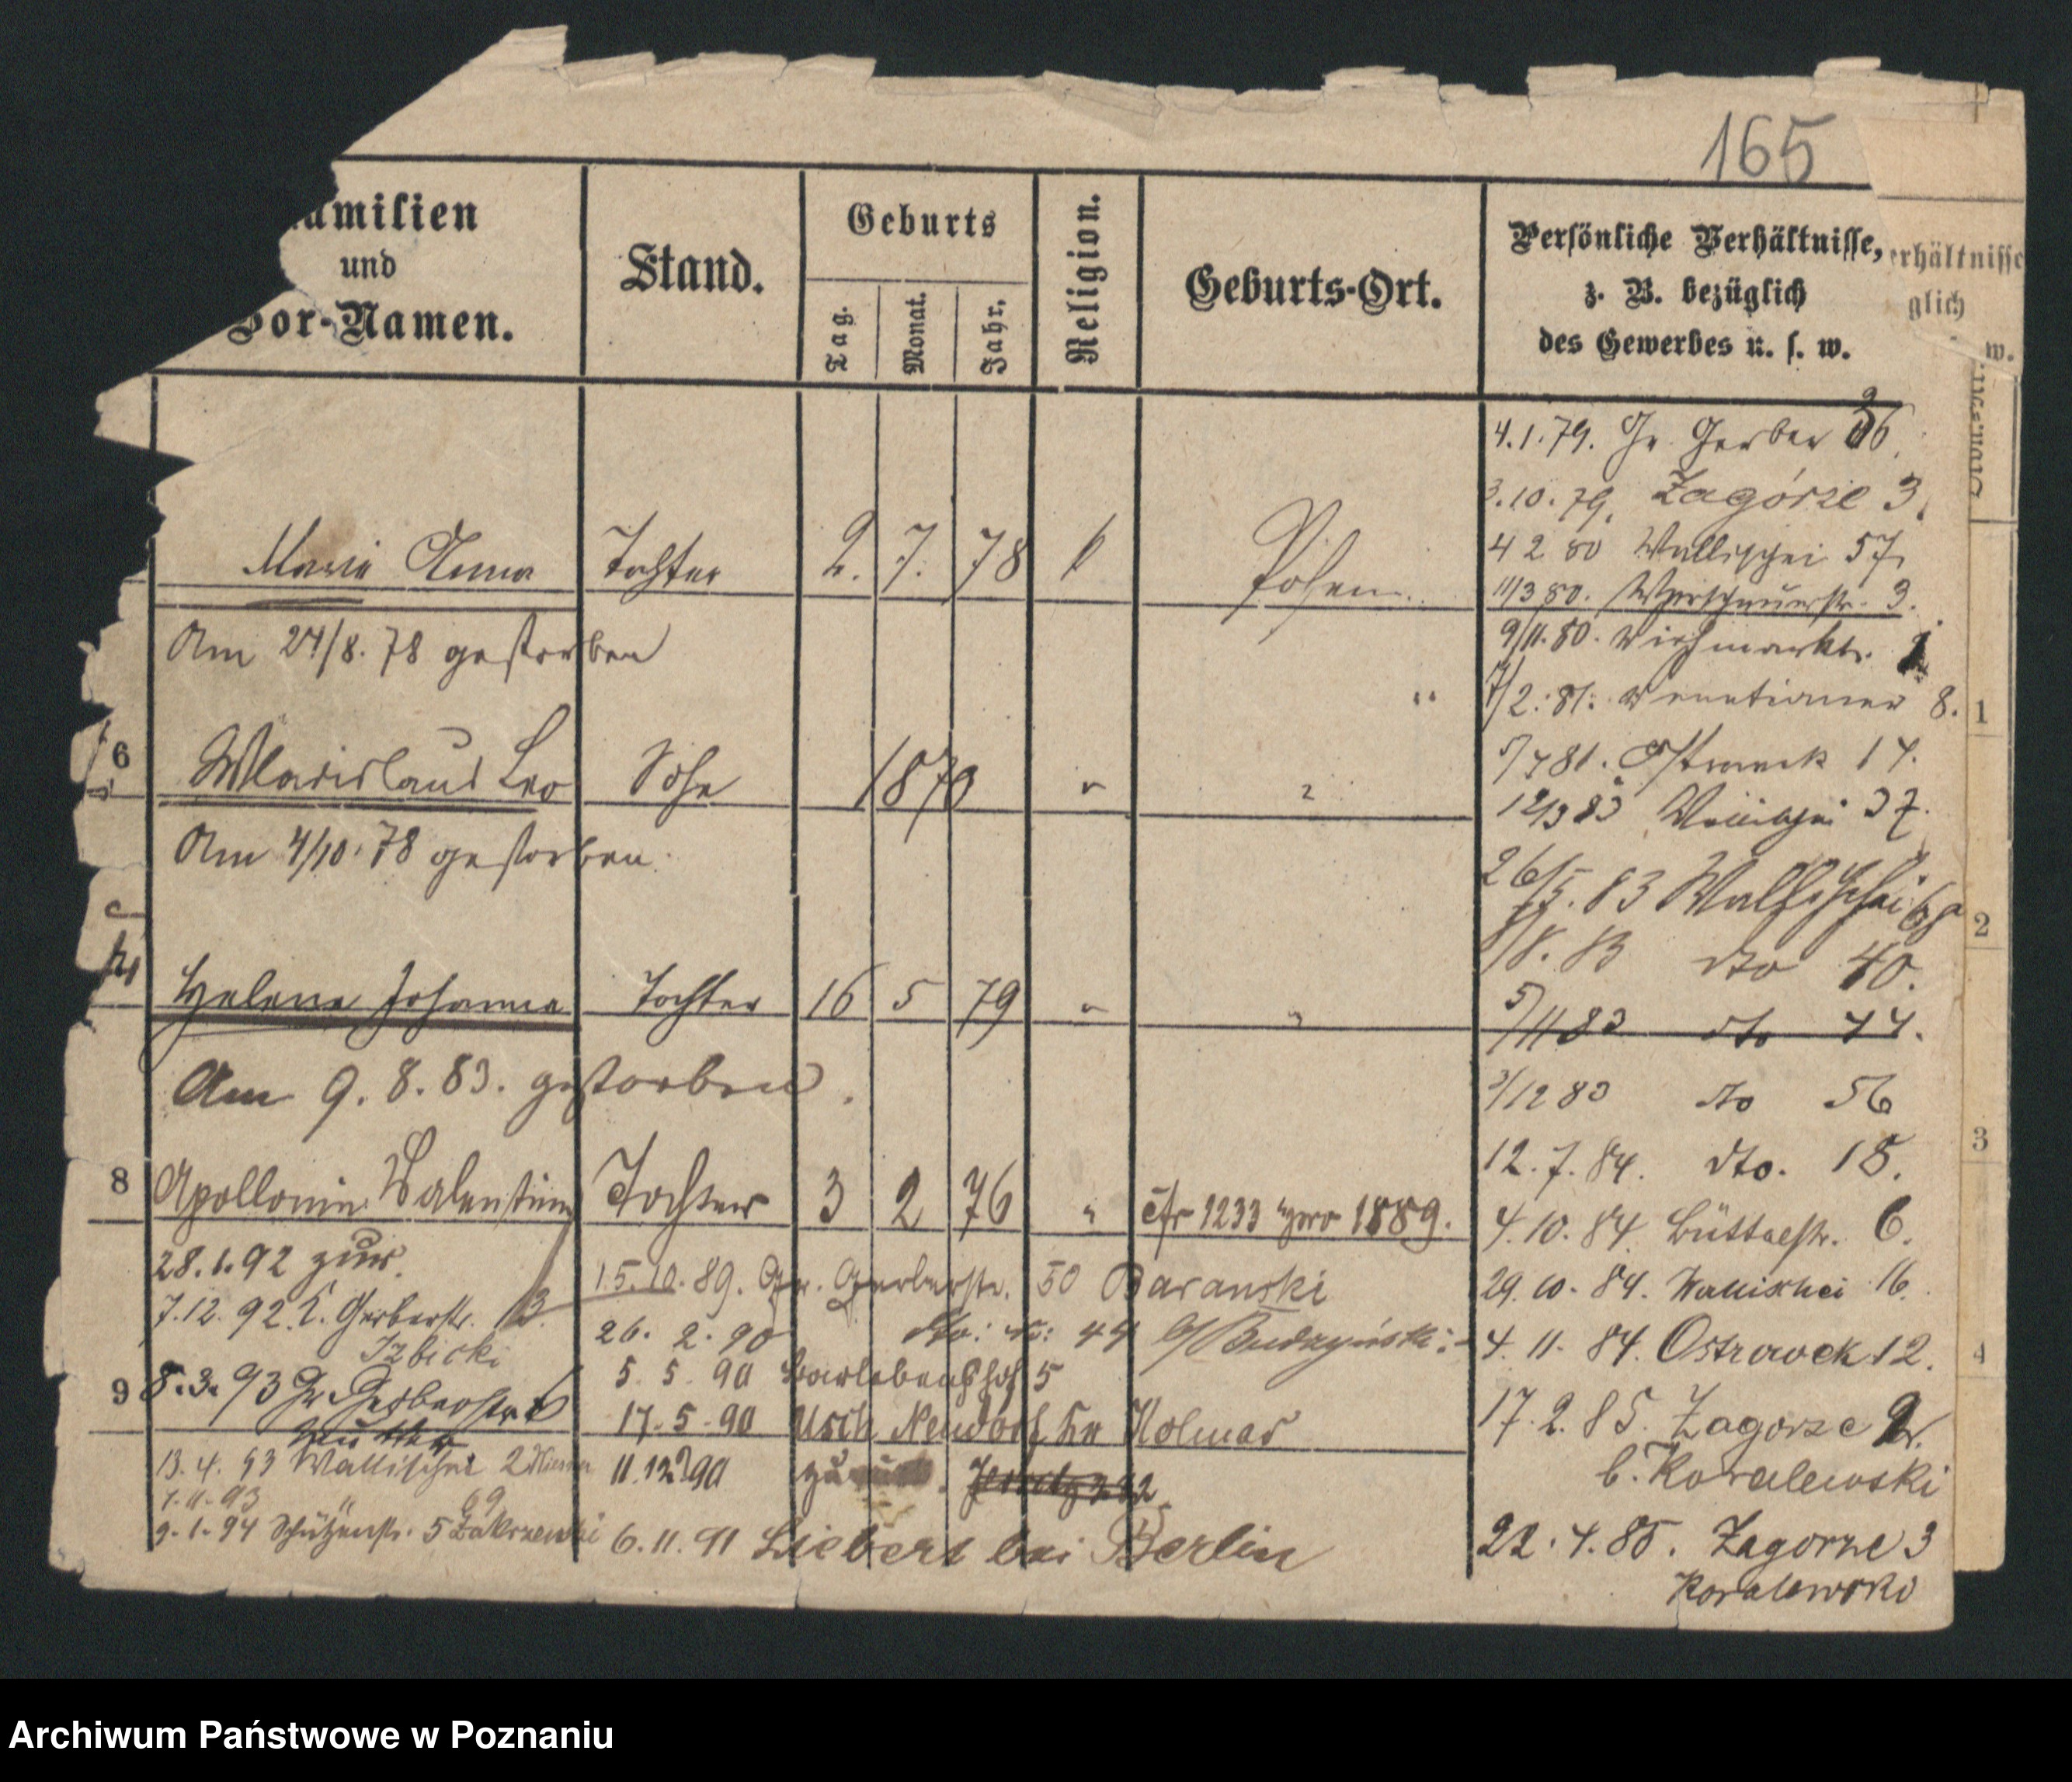 165
amilien
und
Vor-Namen.
Stand.
Geburts
Tag.
Monat.
Jahr.
Religion.
Geburts-Ort.
Persönliche Verhältnisse,
z. B. bezüglich
des Gewerbes u. s. w.
erhältnisse
glich
w.
4.1.79. Gr. Gerber 36
3.10.79. Zagórze 3.
4 2 80 Wallischei 57.
Maria Anna Tochter 2. 7. 78 k Posen.
11/3 80. 3.
Am 24/8. 78 gestorben
9/11. 80. Viehmarkt.
7/2. 81. Venetianer 8.
1
6 Wladislaus Leo Sohn 1876 " "
5/7 81. Ostrowek 17.
12/3 83 37.
Am 4/10. 78 gestorben.
26/5. 83 Wallischei
2
/8. 83 dto 40.
Helene Johanna Tochter 16 5 79 " "
5/11 83 dto 44.
Am 9. 8. 83. gestorben.
3/12 83 dto 56
3
12. 7. 84. dto. 18.
8 Apollonia Valentine Tochter 3 2 76 " cfr 1233 pro 1889.
4. 10. 84. Büttelstr. 6.
28.1.92 zur.
15.10.89. Gr. Gerberstr. 50 Baranski
29. 10. 84. Wallischei 16.
7.12. 92. k. Gerberstr. 13.
Izbicki
26. 2. 90 dto: No: 44 b/Budzynski:
4. 11. 84. Ostrowek 12.
4
9 8.3.93 Gr. Gerberstr. 6
5. 5. 90 Barlebenshof 5
17. 5. 90 Usch Neudorf Kr Kolmar
17. 2. 85. Zagorze 2.
b. Kowalewski
13. 4. 93 Wallischei 2
11. 12. 90
1. 11. 93 " 69
9. 1. 94 Schützenstr. 5 Zakrzewski
6. 11. 91 bei Berlin
22. 4. 85. Zagorze 3
Kowalewski
Archiwum Państwowe w Poznaniu